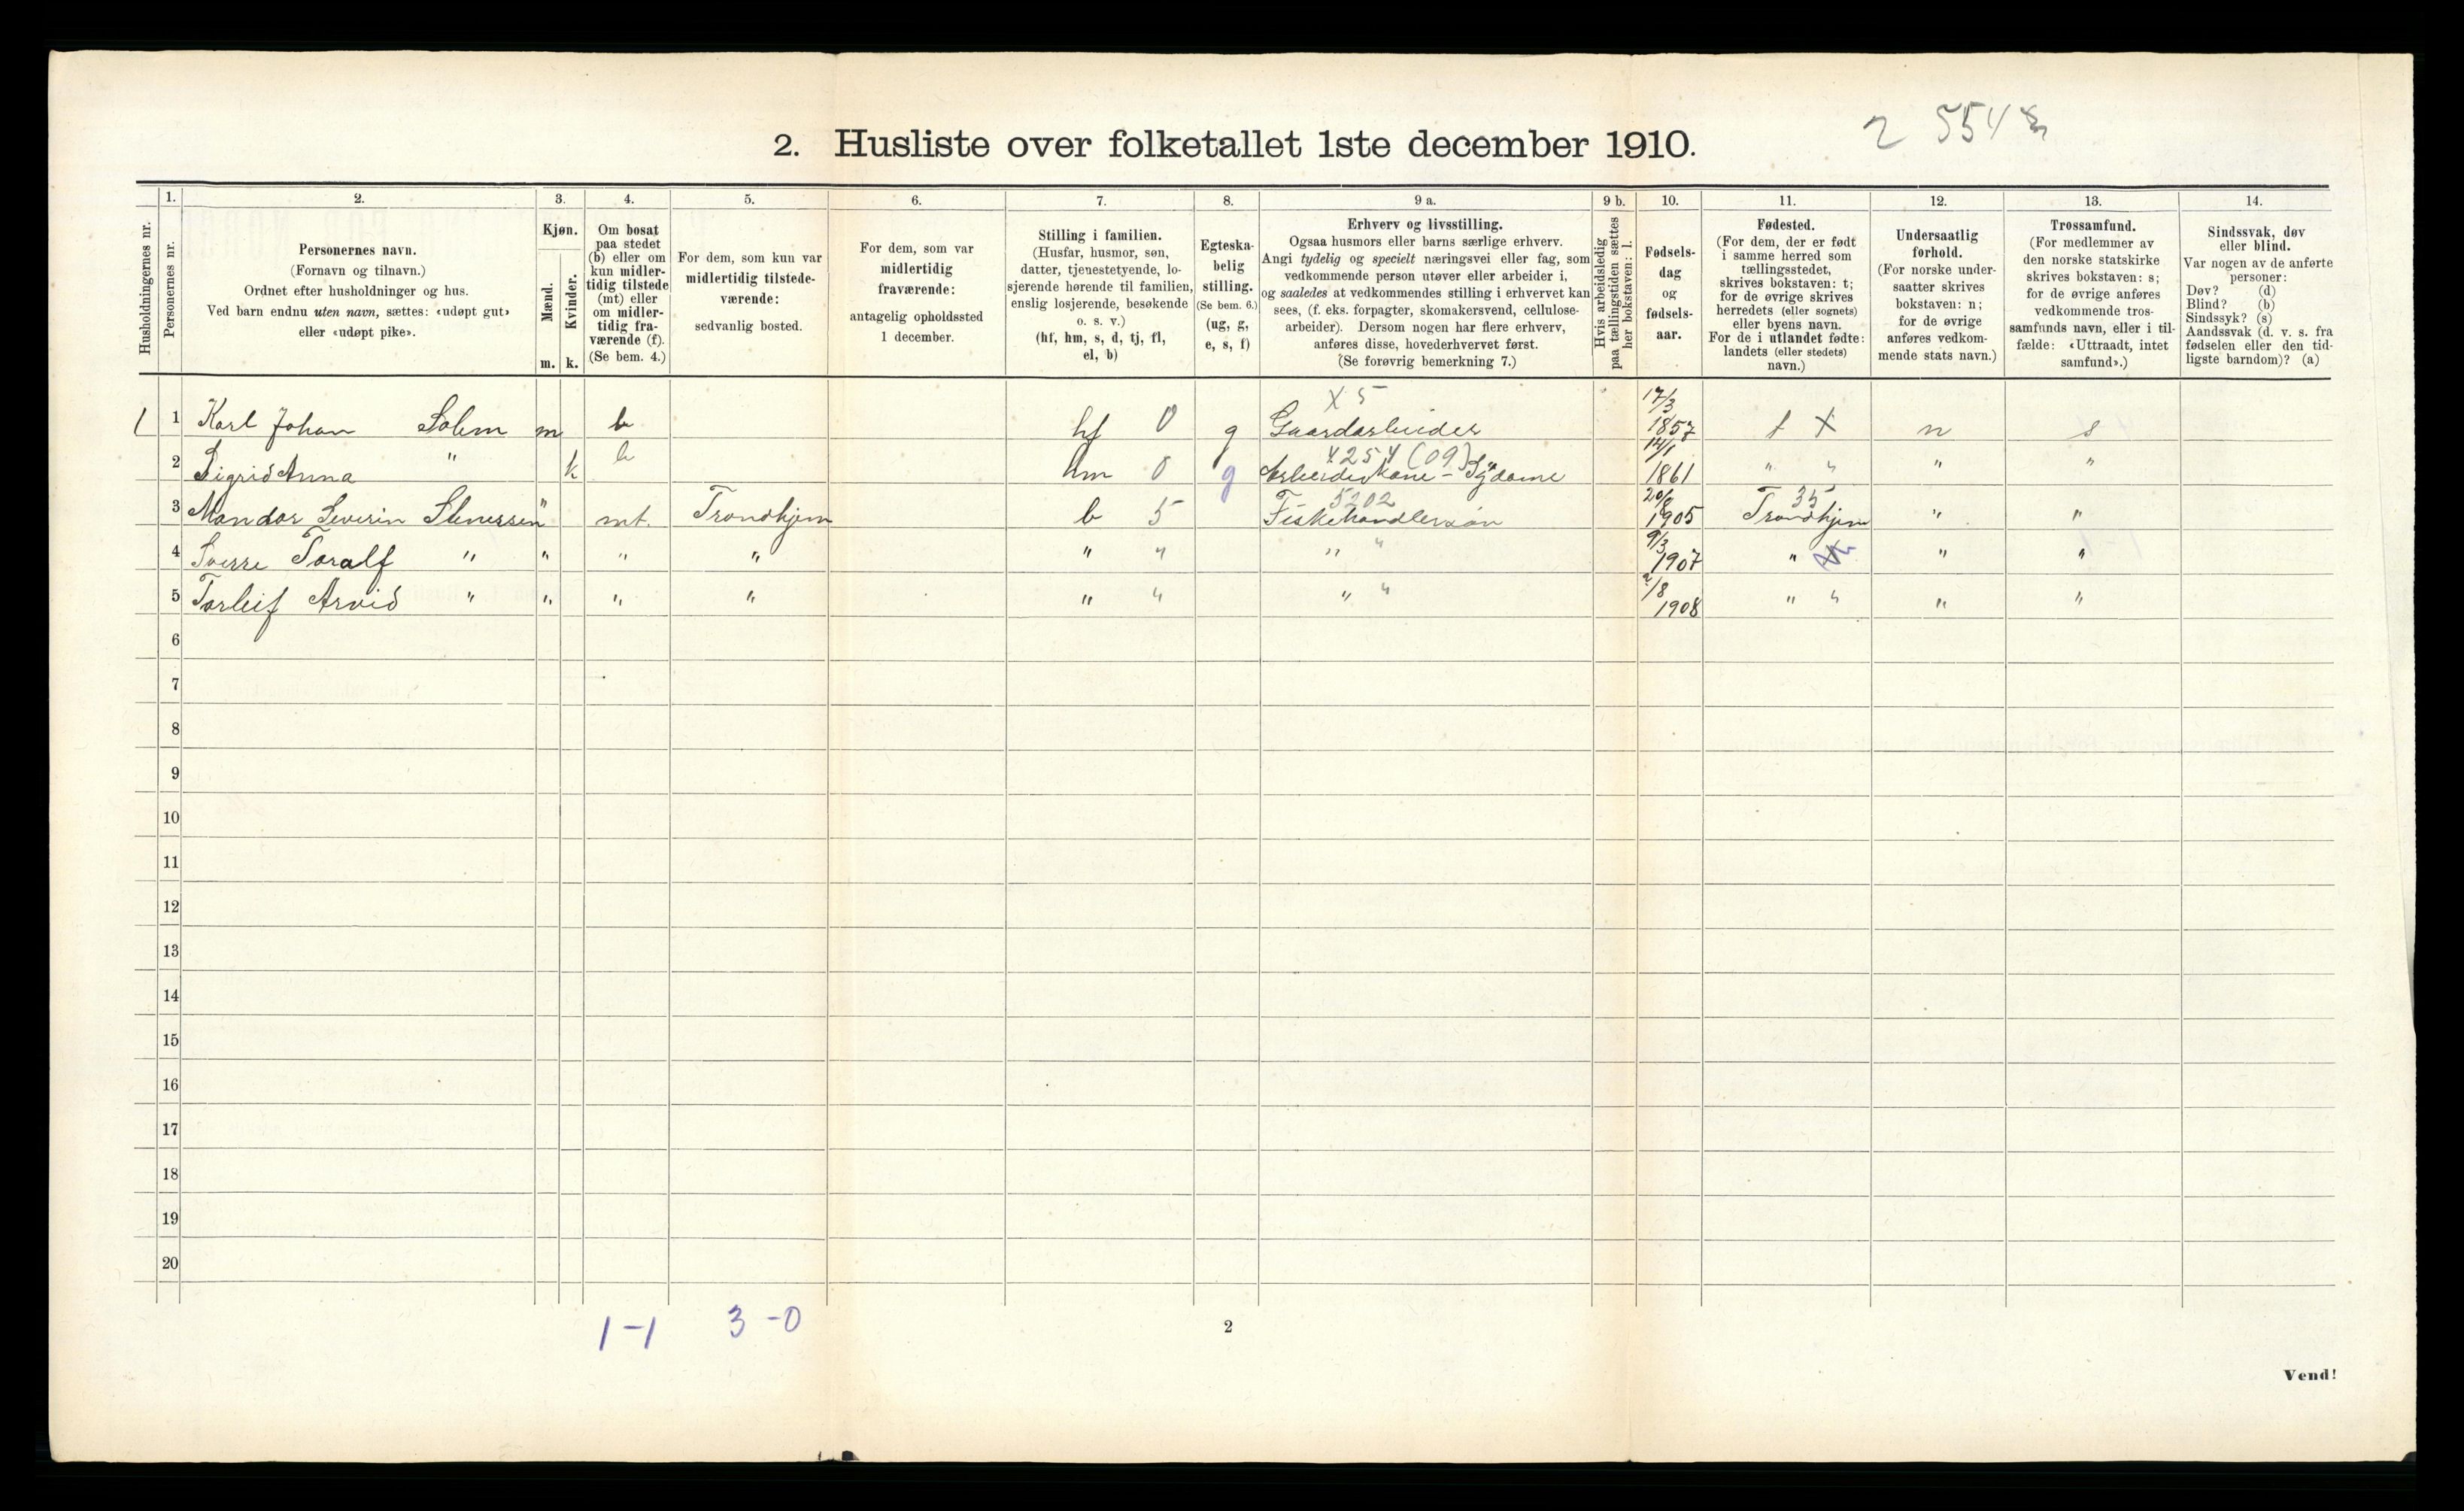 2 554
2. Husliste over folketallet 1ste december 1910.
Husholdningernes nr.
1. Personernes nr.
2. Personernes navn.
(Fornavn og tilnavn.)
Ordnet efter husholdninger og hus.
Ved barn endnu uten navn, sættes: «udøpt gut»
eller «udøpt pike».
3. Kjøn.
Mænd. m.
Kvinder. k.
4. Om bosat
paa stedet
(b) eller om
kun midler-
tidig tilstede
(mt) eller
om midler-
tidig fra-
værende (f).
(Se bem. 4.)
5. For dem, som kun var
midlertidig tilstede-
værende:
sedvanlig bosted.
6. For dem, som var
midlertidig
fraværende:
antagelig opholdssted
1 december.
7. Stilling i familien.
(Husfar, husmor, søn,
datter, tjenestetyende, lo-
sjerende hørende til familien,
enslig losjerende, besøkende
o. s. v.)
(hf, hm, s, d, tj, fl,
el, b)
8. Egteska-
belig
stilling.
(Se bem. 6.)
(ug, g,
e, s, f)
9 a. Erhverv og livsstilling.
Ogsaa husmors eller barns særlige erhverv.
Angi tydelig og specielt næringsvei eller fag, som
vedkommende person utøver eller arbeider i,
og saaledes at vedkommendes stilling i erhvervet kan
sees, (f. eks. forpagter, skomakersvend, cellulose-
arbeider). Dersom nogen har flere erhverv,
anføres disse, hovederhvervet først.
(Se forøvrig bemerkning 7.)
9 b. Hvis arbeidsledig
paa tællingstiden sættes
her bokstaven: l.
10. Fødsels-
dag
og
fødsels-
aar.
11. Fødested.
(For dem, der er født
i samme herred som
tællingsstedet,
skrives bokstaven: t;
for de øvrige skrives
herredets (eller sognets)
eller byens navn.
For de i utlandet fødte:
landets (eller stedets)
navn.)
12. Undersaatlig
forhold.
(For norske under-
saatter skrives
bokstaven: n;
for de øvrige
anføres vedkom-
mende stats navn.)
13. Trossamfund.
(For medlemmer av
den norske statskirke
skrives bokstaven: s;
for de øvrige anføres
vedkommende tros-
samfunds navn, eller i til-
fælde: «Uttraadt, intet
samfund».)
14. Sindssvak, døv
eller blind.
Var nogen av de anførte
personer:
Døv? (d)
Blind? (b)
Sindssyk? (s)
Aandssvak (d. v. s. fra
fødselen eller den tid-
ligste barndom)? (a)
X 5
1 1 Karl Johan Solem m b hf 0 g Gaardarbeider 17/3 1857 t X n s
4254 (09)
2 Sigrid Anna " k b hm 0 g Arbeiderkone - Sydame 14/1 1861 " " " "
5202 35
3 Mandor Severin Stenersen " mt. Trondhjem b 5 Fiskehandlersøn 20/8 1905 Trondhjem " "
4 Sverre Toralf " " " " " " " " 9/3 1907 " " "
5 Torleif Arvid " " " " " " " " 2/8 1908 " " " "
6
7
8
9
10
11
12
13
14
15
16
17
18
19
20
1-1 3-0
2
Vend!